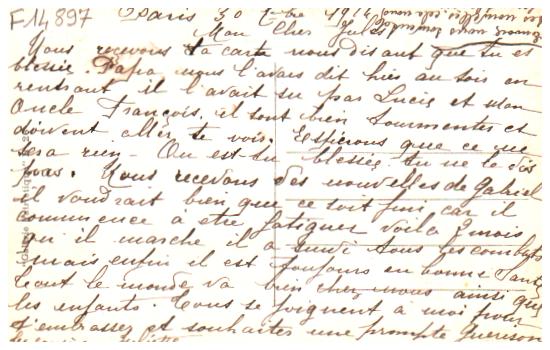 F14897
Paris 30
Mon Cher Jules
Nous recevons ta carte nous disant que tu es
blessé. Papa nous l'avais dit hier au soir en
rentrant il l'avait su par Lucie et Mon
Oncle François, il sont bien tourmentés et
doivent aller te voir. Espérons que ce ne
sera rien - Ou est-tu blessée tu ne le dis
pas. Nous recevons des nouvelles de Gabriel
il voudrait bien que ce soit fini car il
commence à etre fatiguer voila 2 mois
qu il marche il a suivi tous les combats
mais enfin il est toujours en bonne santé
tout le monde va bien chez nous ainsi que
les enfants. Tous se joignent à moi pour
t'embrasser et souhaiter une prompte Guerison